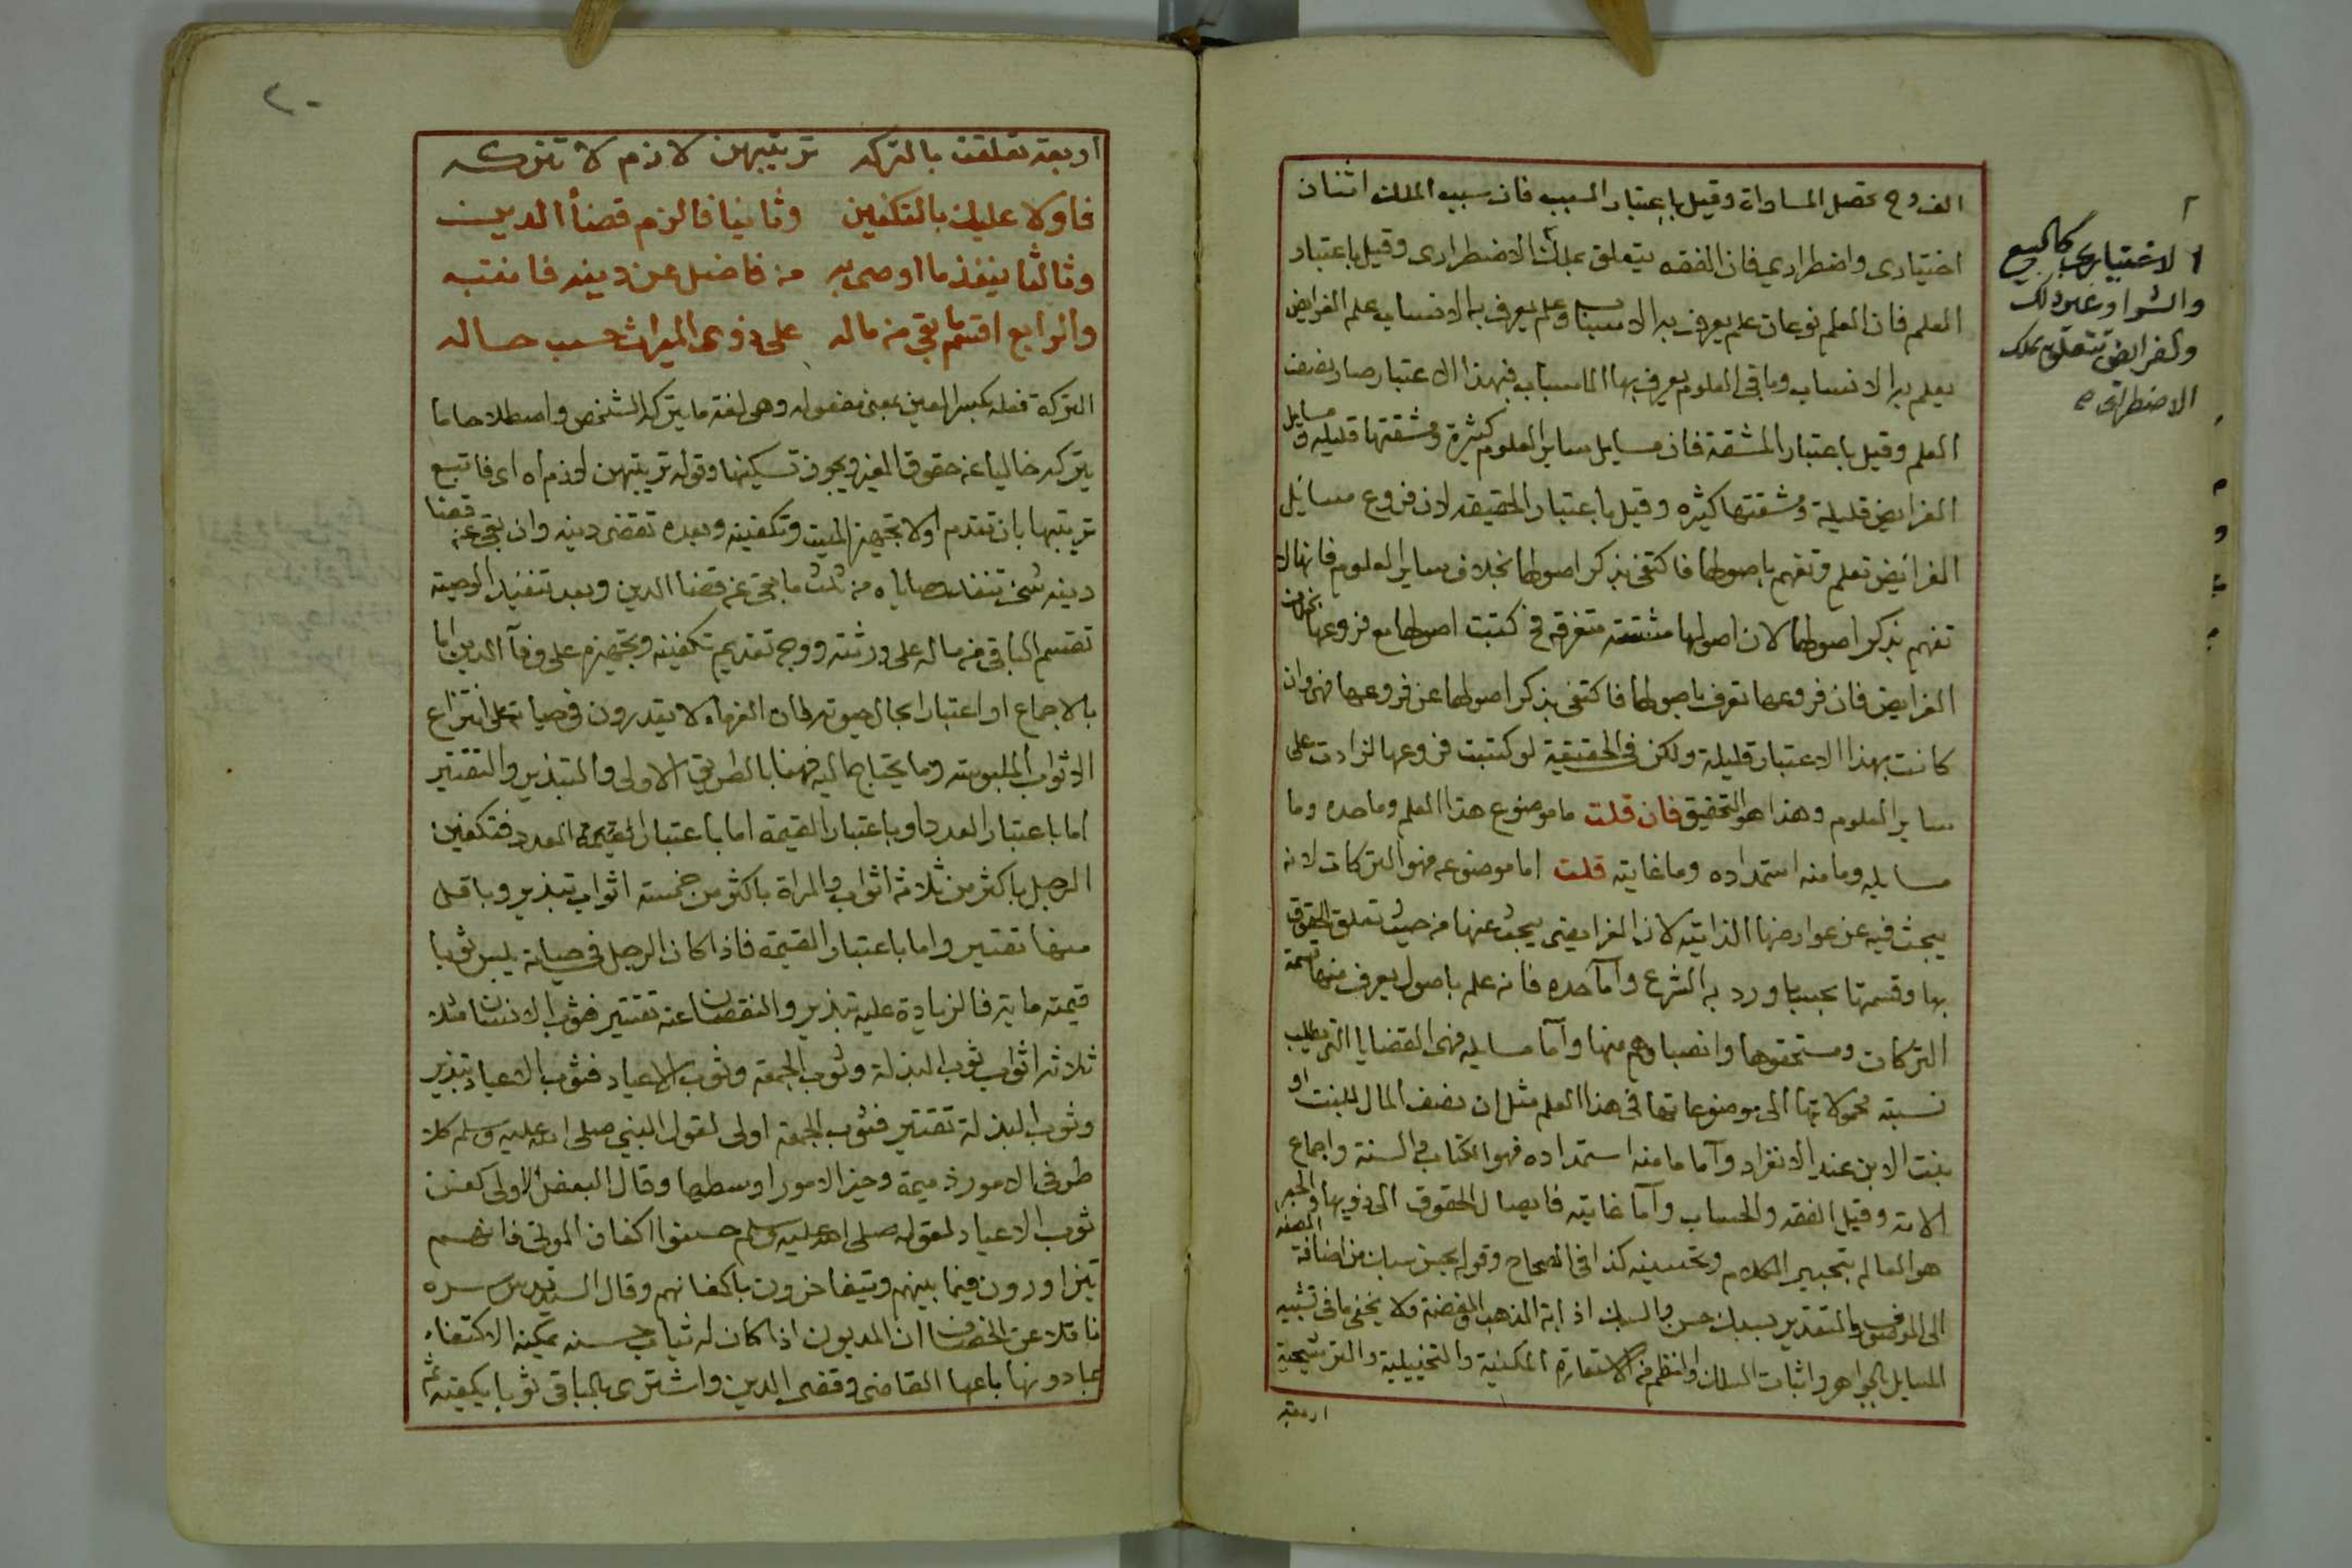 الفروح تحصل المساواة وقيل باعتبار السبب فان سبب الملك اثنان
اختيارى واضطراري فان الفقه يتعلق بملك الاضطرارى وقيل باعتبار
العلم فان العلم نوعان علم يعرف به الاسباب وعلم يعرف به الانساب علم الفرايض
يعلم به الانساب وباقى العلوم يعرف بها الاسباب فبهذا الاعتبار صار نصف
العلم وقيل باعتبار المشقة فان مسايل ساير العلوم كثيرة ومشقتها قليله ومسايل
الفرايض قليلة ومشقتها كثيره وقيل باعتبار الحقيقه لان فروع مسائل
الفرائض تعلم وتفهم باصولها فاكتفى بذكر اصولها بخلاف ساير العلوم فانها لا
تفهم بذكر اصولها لان اصولها متفرقه فى كتبت اصولها مع فروعها بخلاف
الفرايض فان فروعها تعرف باصولها فاكتفى بذكر اصولها عن فروعها فهى وان
كانت بهذا الاعتبار قليلة ولكن فى الحقيقة لو كتبت فروعها لزادت على
ساير العلوم وهذا هو التحقيق فان قلت ما موضوع هذا العلم وما حده وما
مسايله وما منه استمداده وما غايته قلت اما موضوعه فهو التركات لانه
يبحث فيه عن عوارضها الذاتيه لان الفرايضى يبحث عنها من حيث تعلق الحقوق
بها وقسمتها بحسب ما ورد به الشرع وآما حده فانه علم باصول يعرف منها قسمة
التركات ومستحقوها وانصباؤهم منها وآما مسايله فهى القضايا التى يطلب
نسبته محمولاتها الى موضوعاتها فى هذا العلم مثل ان نصف المال للبنت او
بنت الابن عند الانفراد وآما ما منه استمداده فهو الكتاب والسنة واجماع
الامة وقيل الفقه والحساب وآما غايته فايصال الحقوق الى ذويها والحبر
هو العالم بتحبير الكلام وتحسينه كذا فى الصحاح وقوله بحسن سبك من اضافة الصفه
الى الموصوف والتقدير بسبك حسن والسبك اذابة الذهب والفضة ولا يخفى ما فى تشبيه
المسايل بالجواهر واثبات السبك والنظم من الاستعارة المكنية والتخييلية والترشيحية
اربعة
الاختيارى كالبيع
والشرا وغير ذلك
والفرائض تتعلق بملك
الاضطرارى
٢٠
اربعة تعلقت بالتركه ترتيبهن لازم لا تتركه
فاولا عليك بالتكفين وثانيا فالزم قضأ الدين
وثالثا ينفذ ما اوصى به من فاضل عن دينه فانتبه
والرابع اقتسم ما بقى من ماله على ذوى الميراث حسب حاله
التركة فعله بكسر العين بمعنى مفعوله وهى لغة ما يتركه الشخص واصطلاحا ما
يتركه خاليا عن حقوق الغير ويجوز تسكينها وقوله ترتيبهن لازم اه اى فاتبع
ترتيبها بان تقدم اولا تجهيز الميت وتكفينه وبعده تقضى دينه وان بقى عن قضا
دينه شئ تنفذ وصاياه من ثلث ما بقى عن قضا الدين وبعد تنفيذ الوصيته
تقسم الباقى من ماله على ورثته ووجه تقديم تكفينه وتجهيزه على وفآ الدين اما
بالاجماع او اعتبارا بحال حيوته لان الغرماء لا يقدرون فى حياته على انتزاع
الاثواب الملبوسه وما يحتاج اليه فهنا بالطريق الاولى والتبذير والتقتير
اما باعتبار العدد او باعتبار القيمة اما باعتبار العدد فتكفين
الرجل باكثر من ثلاثه اثواب والمراة باكثر من خمسة اثواب تبذير وباقل
منها تقتير واما باعتبار القيمة فاذا كان الرجل فى حياته يلبس ثوبا
قيمته ماية فالزيادة عليه تبذير والنقصان عنه تقتير فثوب الانسان مثلا
ثلاثه اثواب ثوب البذلة وثوب الجمعة وثوب الاعياد فثوب الاعياد تبذير
وثوب البذلة تقتير فثوب الجمعة اولى لقول النبي صلى الله عليه وسلم كلا
طرفى الامور ذميمة وخير الامور اوسطها وقال البعض الاولى كفن
ثوب الاعياد لقوله صلى الله عليه وسلم حسنوا اكفان الموتى فانهم
يتزاورون فيما بينهم ويتفاخرون باكفانهم وقال السيد قدس سره
ناقلا عن الخصاف ان المديون اذا كان له ثياب حسنه يمكنه الاكتفاء
بما دونها باعها القاضى وقضى الدين واشترى بالباقى ثوبا يكفيه ثم